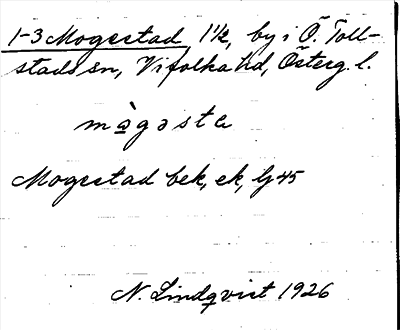 1-3 Mogestad, 1 1/2, by i Ö. Toll-
stads sn, Vifolka hd, Österg. l.
màgəsta
Mogestad bek, ek, lj 45
N. Lindqvist 1926